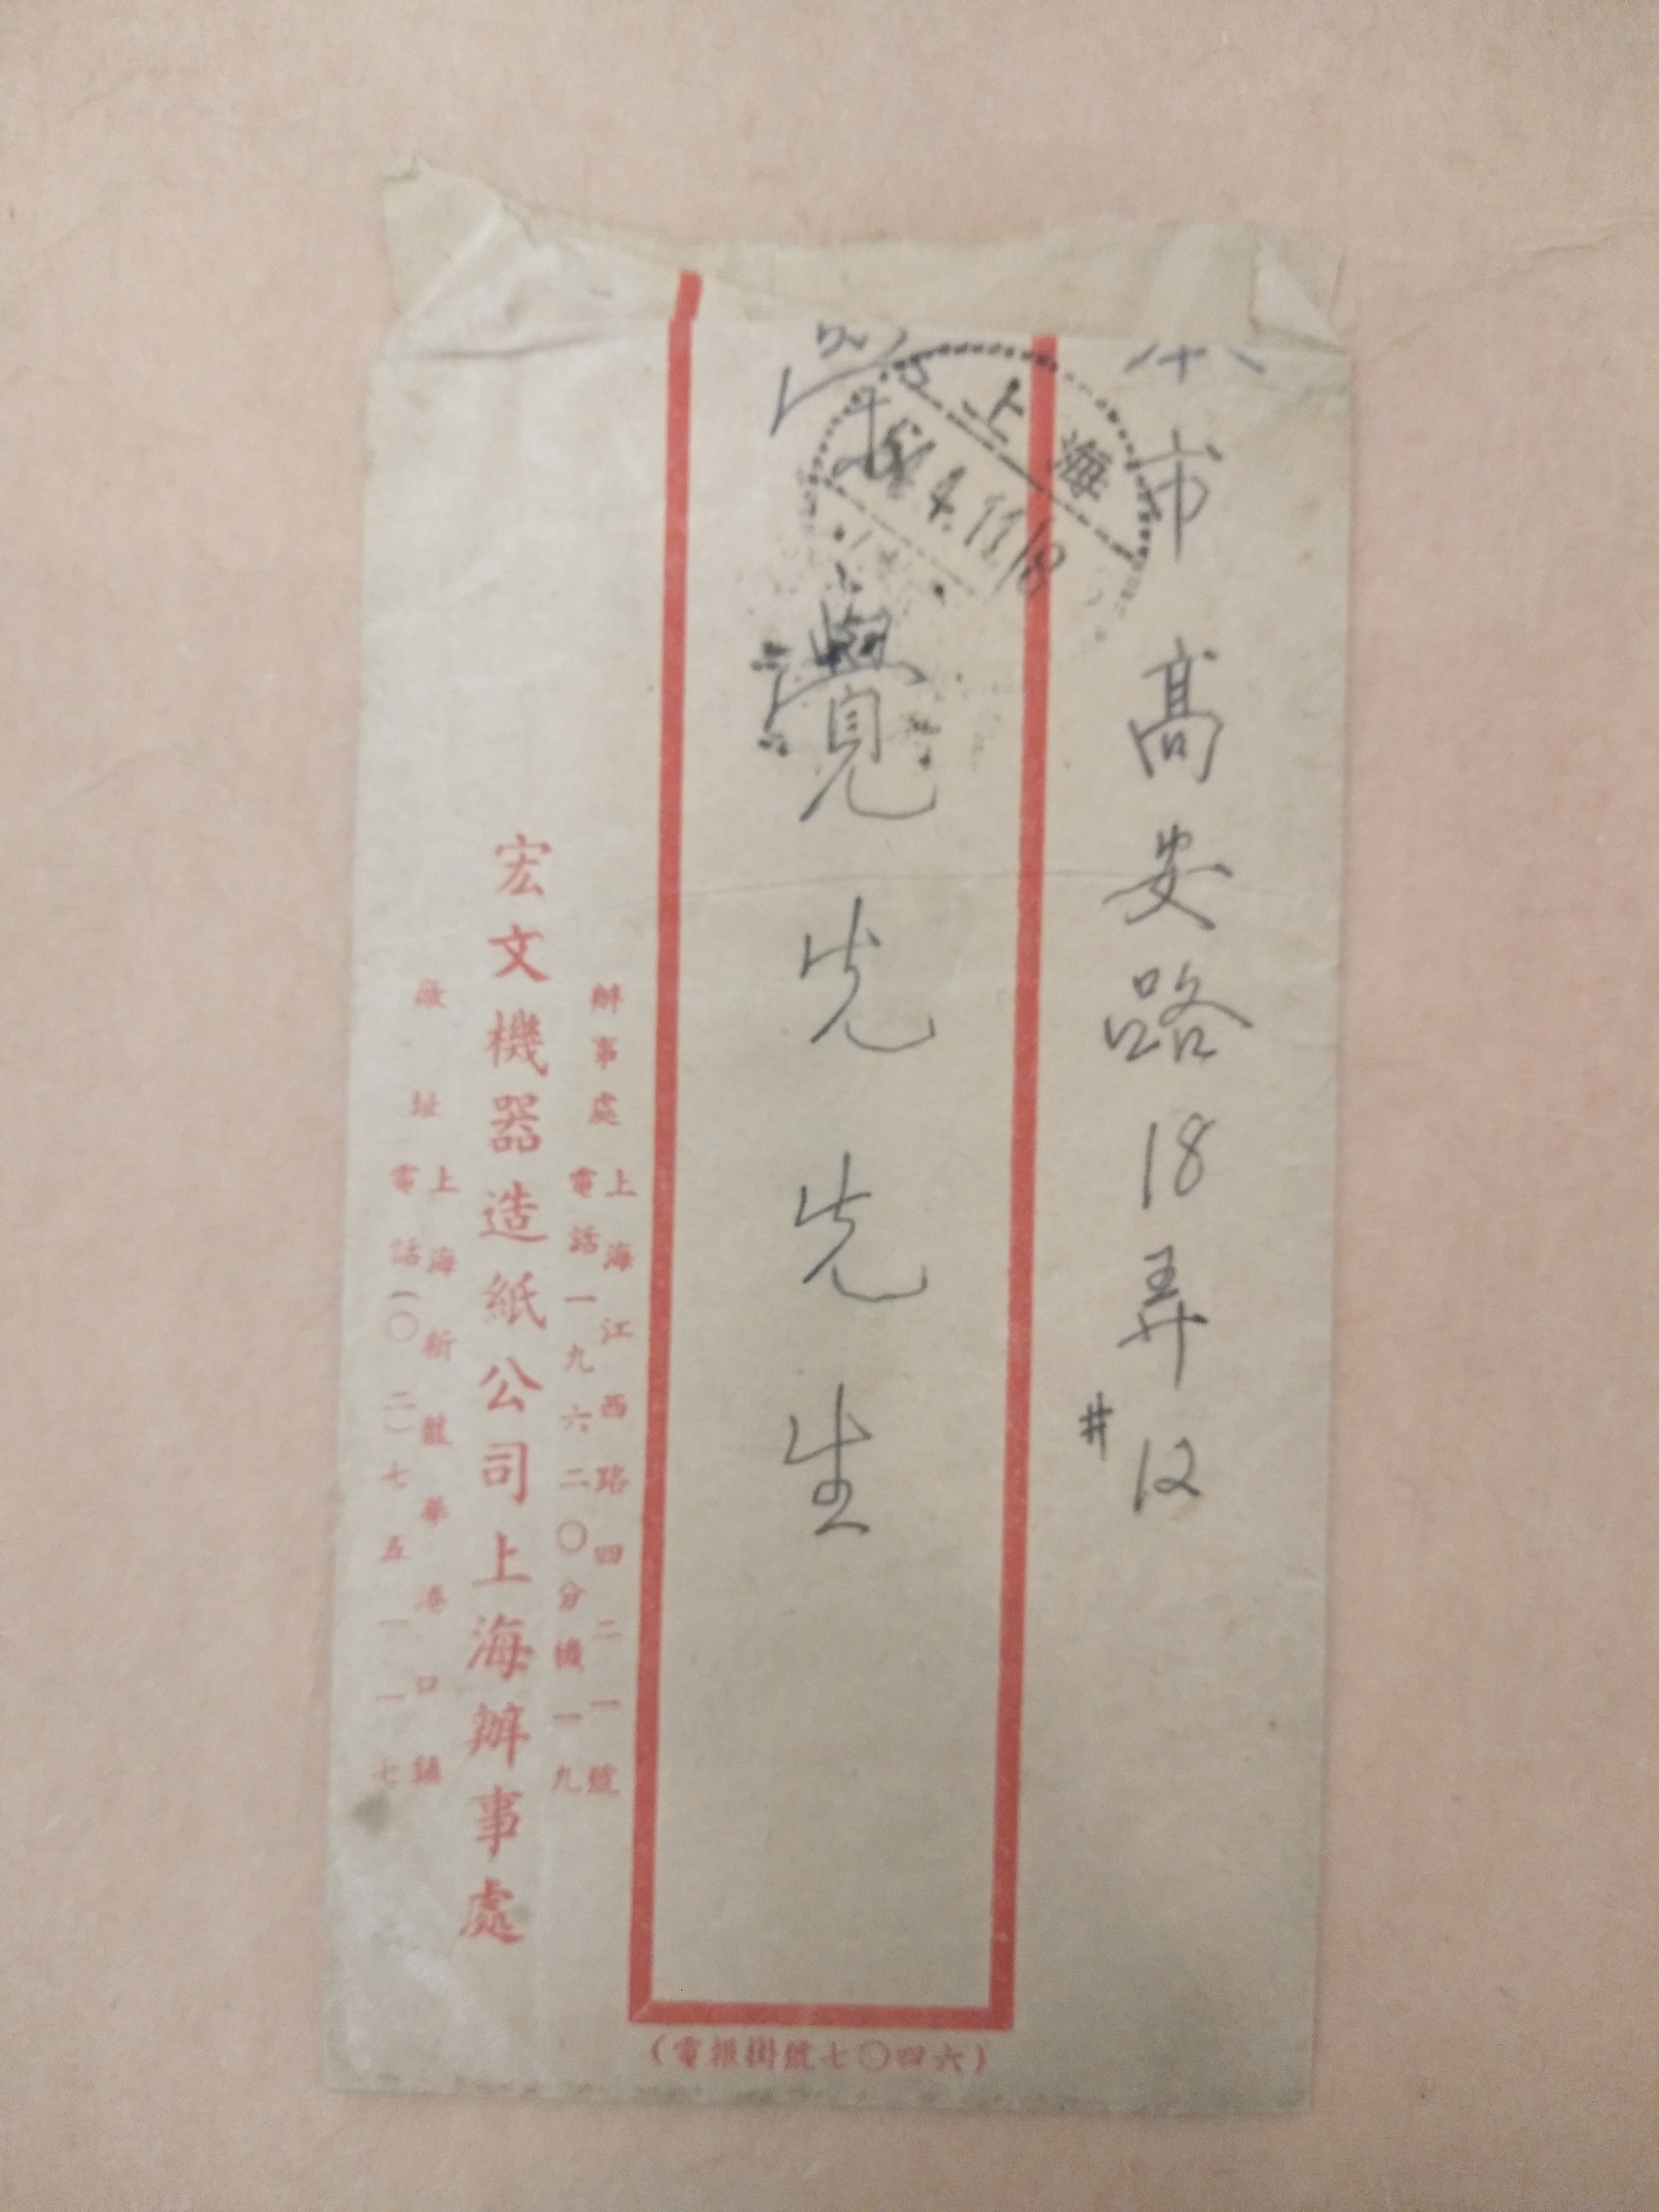 本市高安路18弄#12
覺先先生
上海
辦事處
上海江西路四二一號
電話一九六二〇分機一九
宏文機器造紙公司上海辦事處
廠址
上海新龍華港口鎮
電話(〇二)七五一一七
(電報掛號七〇四六)